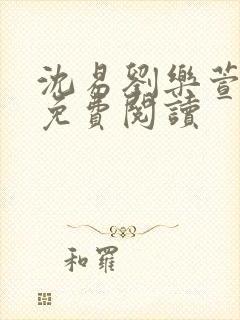 沈易劉樂萱
免費閱讀
和羅